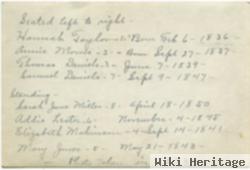 Seated left to right -
Hannah Taylor - 1 - Born Feb 6 - 1836
Annie Morris - 2 - Born Sept 27 - 1837
Thomas Daniels - 3 - June 7 - 1839
Samuel Daniels - 7 - Sept 9 - 1847
Standing -
Sarah Jane Miles - 8 - April 18 - 1850
Allie Lester - 6 - November 4 - 1845
Elizabeth - 4 - Sept 14 - 1841
Mary Jones - 5 - May 21 - 1843
Photo taken
Wiki Heritage